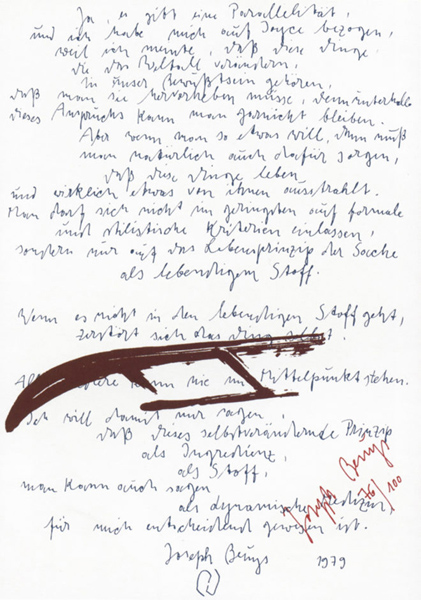 Ja, es gibt eine Parallelität,
und ich habe mich auf Joyce bezogen,
weil ich meinte, daß diese Dinge
die das Weltall verändern,
in unser Bewußtsein gehören,
daß man sie hervorheben müsse, denn unterhalb
dieses Anspruchs kann man garnicht bleiben.
Aber wenn man so etwas will, dann muß
man natürlich auch dafür sorgen,
daß diese Dinge leben
und wirklich etwas von ihnen ausstrahlt.
Man darf sich nicht im geringsten auf formale
und stilistische Kriterien einlassen,
sondern nur auf das Lebensprinzip der Sache
als lebendigem Stoff.
Wenn es nicht in den lebendigen Stoff geht,
zerstört sich das Ding selbst.
kann nie im Mittelpunkt stehen.
Ich will damit nur sagen,
daß dieses selbstverändernde Prinzip
als Ingredienz,
als Stoff,
man kann auch sagen
als dynamische Medizin
für mich entscheidend gewesen ist.
Joseph Beuys 1979
Joseph Beuys
76/100